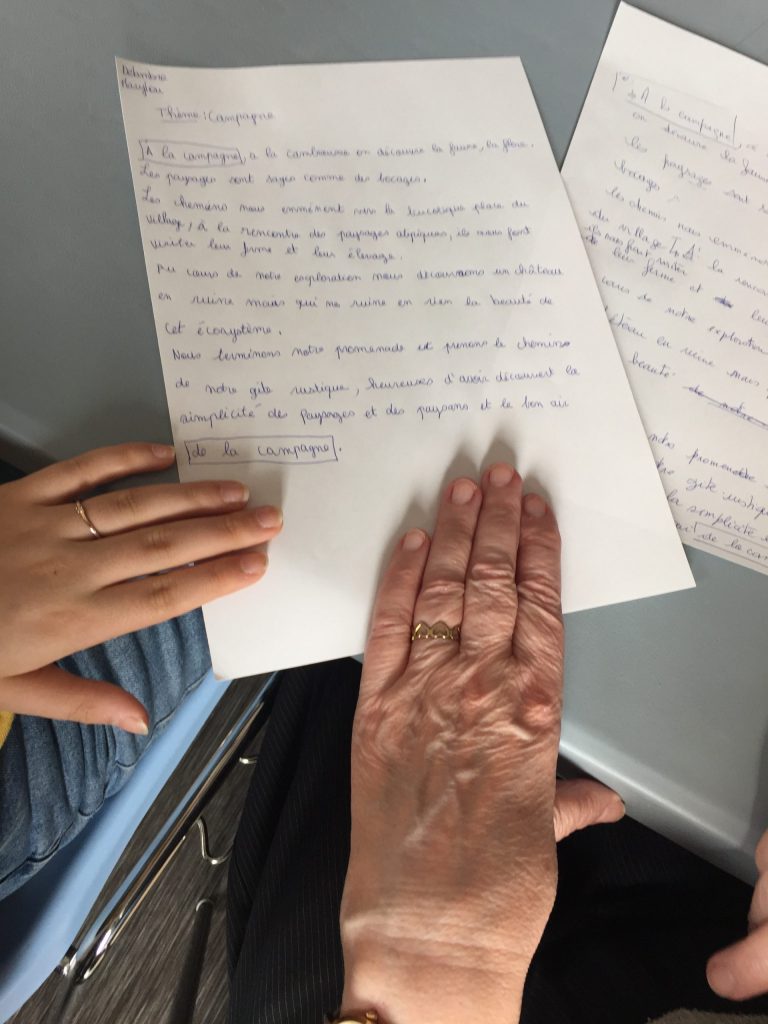 Thème : Campagne
A la campagne, a la cambrousse on découvre la faune, la flore.
Les paysages sont sages comme des bocages.
Les chemins nous emmènent vers la bucolique place du
village, à la rencontre des paysages atypiques, ils nous font
visiter leur ferme et leur élevage.
Au cours de notre exploration nous découvrons un château
en ruine mais qui ne ruine en rien la beauté de
cet écosystème.
Nous terminons notre promenade et prenons le chemin
de notre gîte rustique, heureuses d'avoir découvert la
simplicité des Paysages et des paysans et le bon air
de la campagne.
A la campagne,
on découvre la faun
les paysages sont s
bocages
les chemins nous emmènen
du village, à la rencon
ils nous font visiter
leur ferme et leu
cours de notre exploration
teau en ruine mais
beauté.
notre promenade
tre gîte rustique
la simplicité
de la cam